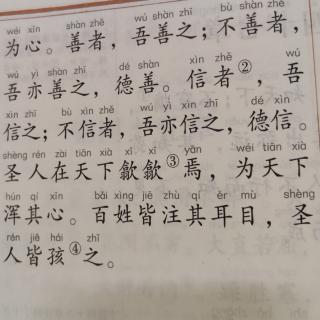 wéi xīn shàn zhě wú shàn zhī bù shàn zhě
为心。善者，吾善之；不善者，
wú yì shàn zhī dé shàn xìn zhě wú
吾亦善之，德善。信者②，吾
xìn zhī bù xìn zhě wú yì xìn zhī dé xìn
信之；不信者，吾亦信之，德信。
shèng rén zài tiān xià xī xī yān wéi tiān xià
圣人在天下歙歙③焉，为天下
hún qí xīn bǎi xìng jiē zhù qí ěr mù shèng
浑其心。百姓皆注其耳目，圣
rén jiē hái zhī
人皆孩④之。